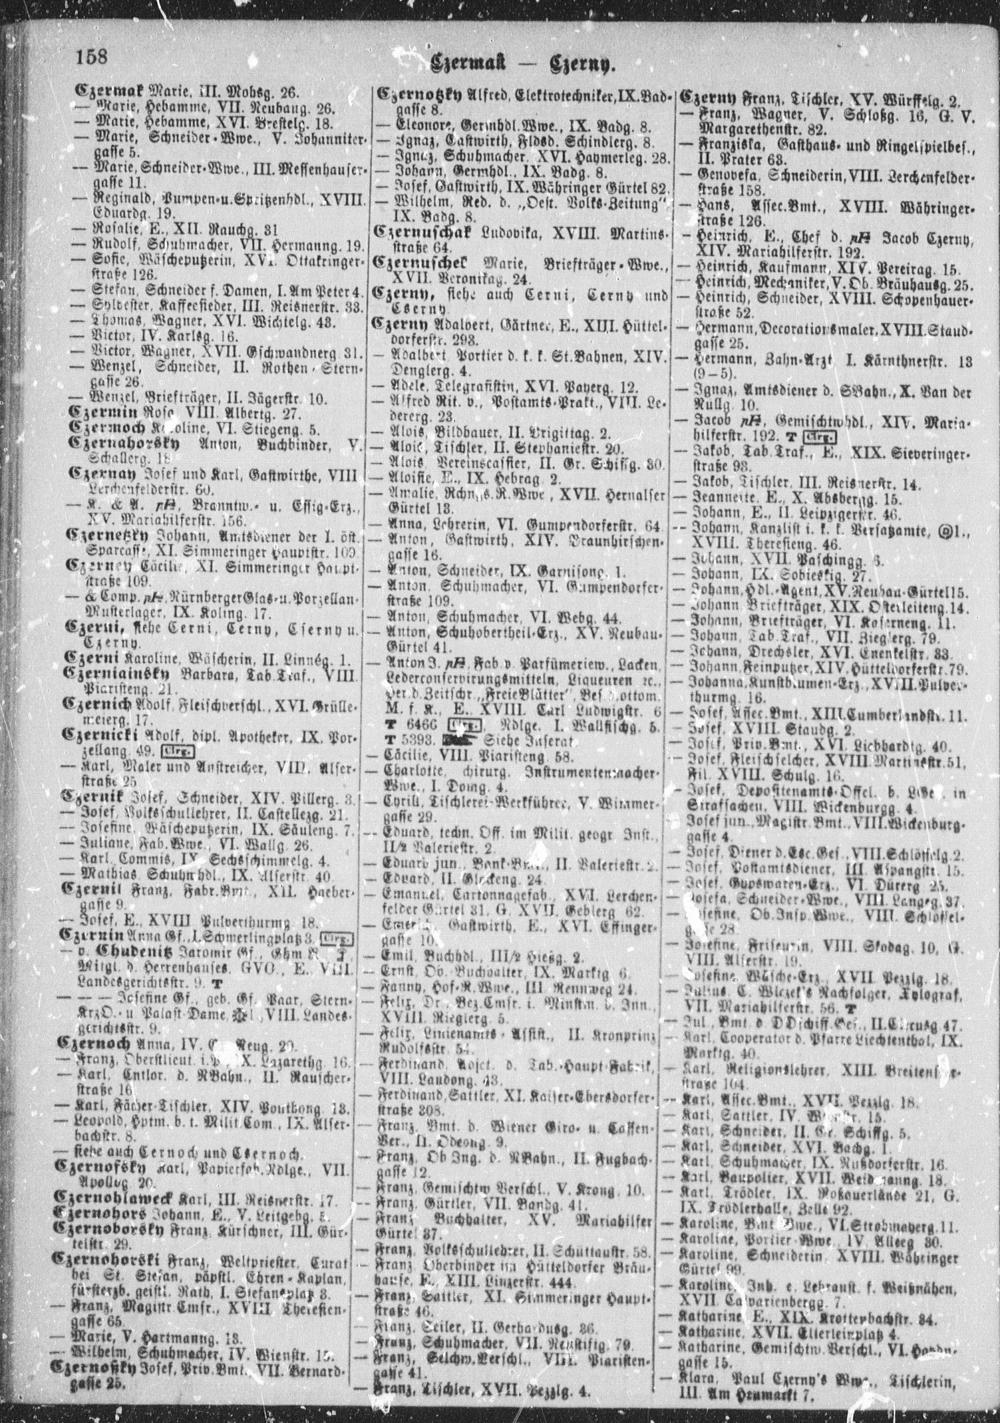 158
Czermak — Czerny.
Czermak Marie, III. Mohsg. 26.
— Marie, Hebamme, VII. Neubaug. 26.
— Marie, Hebamme, XVI. Brestelg. 18.
— Marie, Schneider-Wwe., V. Johanniter-
gasse 5.
— Marie, Schneider-Wwe., III. Messenhauser-
gasse 11.
— Reginald, Pumpen-u.Spritzenhdl., XVIII.
Eduardg. 19.
— Rosalie, E., XII. Rauchg. 31
— Rudolf, Schuhmacher, VII. Hermanng. 19.
— Sofie, Wäscheputzerin, XVI. Ottakringer-
straße 126.
— Stefan, Schneider f. Damen, I. Am Peter 4.
— Sylvester, Kaffeesieder, III. Reisnerstr. 33.
— Thomas, Wagner, XVI. Wichtelg. 43.
— Victor, IV. Karlsg. 16.
— Victor, Wagner, XVII. Gschwandnerg. 31.
— Wenzel, Schneider, II. Rothen-Stern-
gasse 26.
— Wenzel, Briefträger, II. Jägerstr. 10.
Czermin Rosa, VIII. Albertg. 27.
Czermoch Karoline, VI. Stiegeng. 5.
Czernahorsky Anton, Buchbinder, V.
Schallerg. 18
Czernay Josef und Karl, Gastwirthe, VIII
Lerchenfelderstr. 60.
— K. & A. pH, Branntw.- u. Essig-Erz.,
XV. Mariahilferstr. 156.
Czernetzky Johann, Amtsdiener der I. öst.
Sparcasse, XI. Simmeringer Hauptstr. 109.
Czerney Cäcilie, XI. Simmeringer Haupt-
straße 109.
— & Comp. pH, Nürnberger Glas-u. Porzellan-
Musterlager, IX. Koling. 17.
Czerni, siehe Cerni, Cerny, Cserny u.
Czerny.
Czerni Karoline, Wäscherin, II. Linnég. 1.
Czerniainsky Barbara, Tab.Traf., VIII.
Piaristeng. 21.
Czernich Adolf, Fleischverschl., XVI. Grülle-
meierg. 17.
Czernicki Adolf, dipl. Apotheker, IX. Por-
zellang. 49. Clrg.
— Karl, Maler und Anstreicher, VIII. Alser-
straße 25
Czernik Josef, Schneider, XIV. Pillerg. 3.
— Josef, Volksschullehrer, II. Castellezg. 21.
— Josefine, Wäscheputzerin, IX. Säuleng. 7.
— Juliane, Fab.Wwe., VI. Wallg. 26.
— Karl, Commis, IX. Sechsschimmelg. 4.
— Mathias, Schuhmhdl., IX. Alserstr. 40.
Czernil Franz, Fabr.Bmt., XII. Haeber-
gasse 9.
— Josef, E., XVIII Pulverthurmg. 18.
Czernin Anna Gf., I. Schmerlingplatz 3. Clrg.
— v. Chudenitz Jaromir Gf., Ghm R
Mitgl. d. Herrenhauses, GVO., E., VIII.
Landesgerichtsstr. 9. T
— — — Josefine Gf., geb. Gf. Paar, Stern-
KrzO.- u Palast-Dame, VIII. Landes-
gerichtsstr. 9.
Czernoch Anna, IV. G Neug. 20.
— Franz, Oberstlieut. i. P., X. Lazarethg. 16.
— Karl, Cntlor. d. NBahn., II. Rauscher-
straße 16
— Karl, Fächer-Tischler, XIV. Pouthong. 13.
— Leopold, Hptm. b. t. Milit Com., IX. Alser-
bachstr. 8.
— siehe auch Cernoch und Csernoch.
Czernofsky Karl, Papierfab.Ndlge., VII.
Apollog. 20.
Czernohlaweck Karl, III. Reisnerstr. 17.
Czernohors Johann, E., V. Leitgebg. 5.
Czernohorsky Franz, Kürschner, III. Gür-
telstr. 29.
Czernohorski Franz, Weltpriester, Curat
bei St. Stefan, päpstl. Ehren-Kaplan,
fürsterzb. geistl. Rath, I. Stefansplatz 3.
— Franz, Magistr. Cmsr., XVIII Theresien-
gasse 65.
— Marie, V. Hartmanng. 13.
— Wilhelm, Schuhmacher, IV. Wienstr. 15.
Czernosky Josef, Priv.Bmt., VII. Bernard-
gasse 25.
Czernotzky Alfred, Elektrotechniker, IX. Bad-
gasse 8.
— Eleonore, Germhdl.Wwe., IX. Badg. 8.
— Ignaz, Gastwirth, Fldsd. Schindlerg. 8.
— Ignaz, Schuhmacher, XVI. Haymerleg. 28.
— Johann, Germhdl., IX. Badg. 8.
— Josef, Gastwirth, IX. Währinger Gürtel 82.
— Wilhelm, Red. d. „Oest. Volks-Zeitung"
IX. Badg. 8.
Czernuschak Ludovika, XVIII. Martins-
straße 64.
Czernuschek Marie, Briefträger-Wwe.,
XVII. Veronikag. 24.
Czerny, siehe auch Cerni, Cerny und
Cserny.
Czerny Adalbert, Gärtner, E., XIII. Hüttel-
dorferstr. 293.
— Adalbert, Portier d. k. k. St.Bahnen, XIV.
Denglerg. 4.
— Adele, Telegrafistin, XVI. Payerg. 12.
— Alfred Rit. v., Postamts-Prakt., VIII. Le-
dererg. 23.
— Alois, Bildhauer, II. Brigittag. 2.
— Alois, Tischler, II. Stephaniestr. 20.
— Alois, Vereinscassier, II. Gr. Schiffg. 30.
— Aloisie, E., IX. Hebrag. 2.
— Amalie, Rchngs.R.Wwe., XVII. Hernalser
Gürtel 13.
— Anna, Lehrerin, VI. Gumpendorferstr. 64
— Anton, Gastwirth, XIV. Braunhirschen-
gasse 16.
— Anton, Schneider, IX. Garnisong. 1.
— Anton, Schuhmacher, VI. Gumpendorfer-
straße 109.
— Anton, Schuhmacher, VI. Webg. 44.
— Anton, Schuhobertheil-Erz., XV. Neubau-
Gürtel 41.
— Anton J. pH, Fab. v. Parfümeriew., Lacken,
Lederconservirungsmitteln, Liqueuren ec.,
Her. d. Zeitschr. „Freie Blätter", Bes.
M. f. K., E., XVIII. Carl Ludwigstr. 6
T 6466 Clrg., Ndlge. I. Wallfischg. 5.
T 5393. Siehe Inserat
— Cäcilie, VIII. Piaristeng. 58.
— Charlotte, chirurg. Instrumentenmacher-
Wwe., I. Domg. 4.
— Cyrill, Tischlerei-Werkführer, V. Wimmer-
gasse 29.
— Eduard, techn. Off. im Milit. geogr. Inst.,
II/2 Valeriestr. 2.
— Eduard jun., Bank-Bmt., II. Valeriestr. 2.
— Eduard, II. Glockeng. 24.
— Emanuel, Cartonnagefab., XVI. Lerchen-
felder Gürtel 31, G. XVII. Geblerg. 62.
— Emerich, Gastwirth, E., XVI. Effinger-
gasse 10
— Emil, Buchhdl., III/2 Hießg. 2.
— Ernst, Ob. Buchhalter, IX. Marktg 6.
— Fanny, Hof-R.Wwe., III. Rennweg 24.
— Felix, Dr., Bez.Cmsr. i. Minstm. d. Inn.,
XVIII. Rieglerg. 5.
— Felix, Linienamts-Assist., II. Kronprinz
Rudolfsstr. 54.
— Ferdinand, Adjct. d. Tab.-Haupt-Fabrik,
VIII. Laudong. 43.
— Ferdinand, Sattler, XI. Kaiser-Ebersdorfer-
straße 308.
— Franz, Bmt. d. Wiener Giro- u. Cassen-
Ver., II. Odeong. 9.
— Franz, Ob Ing. d. NBahn., II. Fugbach-
gasse 12.
— Franz, Gemischtw Verschl., V. Krong. 10.
— Franz, Gürtler, VII. Bandg. 41.
— Franz, Buchhalter, XV. Mariahilfer
Gürtel 37.
— Franz, Volksschullehrer, II. Schüttaustr. 58.
— Franz, Oberbinder im Hütteldorfer Bräu-
hause, E., XIII. Linzerstr. 444
— Franz, Sattler, XI. Simmeringer Haupt-
straße 46.
— Franz, Seiler, II. Gerhardusg. 36.
— Franz, Schuhmacher, VII. Neustiftg. 79.
— Franz, Selchw.Verschl., VIII. Piaristen-
gasse 41.
— Franz, Tischler, XVII. Pezzlg. 4.
Czerny Franz, Tischler, XV. Würffelg. 2.
— Franz, Wagner, V. Schloßg. 16, G. V.
Margarethenstr. 82.
— Franziska, Gasthaus- und Ringelspielbes.,
II. Prater 63.
— Genovefa, Schneiderin, VIII. Lerchenfelder-
straße 158.
— Hans, Assec.Bmt., XVIII. Währinger-
straße 126.
— Heinrich, E., Chef d. pH Jacob Czerny,
XIV. Mariahilferstr. 192.
— Heinrich, Kaufmann, XIV. Pereirag. 15.
— Heinrich, Mechaniker, V. Ob. Bräuhausg. 25.
— Heinrich, Schneider, XVIII. Schopenhauer-
straße 52.
— Hermann, Decorationsmaler, XVIII. Staud-
gasse 25.
— Hermann, Zahn-Arzt, I. Kärnthnerstr. 13
(9—5).
— Ignaz, Amtsdiener d. SBahn., X. Van der
Nüllg. 10.
— Jacob pH, Gemischtwhdl., XIV. Maria-
hilferstr. 192. T Clrg.
— Jakob, Tab.Traf., E., XIX. Sieveringer-
straße 93.
— Jakob, Tischler, III. Reisnerstr. 14.
— Jeannette, E., X. Absbergg. 15.
— Johann, E., II. Leipzigerstr. 46.
— Johann, Kanzlist i. k. k. Versatzamte, @1.,
XVIII. Theresieng. 46.
— Johann, XVII. Paschingg. 6.
— Johann, IX. Sobieskig. 27.
— Johann, Hdl.-Agent, XV. Neubau-Gürtel 15.
— Johann, Briefträger, XIX. Osterleiteng. 14.
— Johann, Briefträger, VI. Kaserneng. 11.
— Johann, Tab. Traf., VII. Zieglerg. 79.
— Johann, Drechsler, XVI. Enenkelstr. 33.
— Johann, Feinputzer, XIV. Hütteldorferstr. 79.
— Johanna, Kunstblumen-Erz., XVIII. Pulver-
thurmg. 16.
— Josef, Assec.Bmt., XIII. Cumberlandstr. 11.
— Josef, XVIII. Staudg. 2.
— Josef, Priv.Bmt., XVI. Liebhardtg. 40.
— Josef, Fleischselcher, XVIII. Martinsstr. 51,
Fil. XVIII. Schulg. 16.
— Josef, Depositenamts-Offcl. b. LGe. in
Strafsachen, VIII. Wickenburgg. 4.
— Josef jun., Magistr. Bmt., VIII. Wickenburg-
gasse 4.
— Josef, Diener d. Esc.Ges., VIII. Schlösselg. 2.
— Josef, Postamtsdiener, III. Aspangstr. 15.
— Josef, Gypswaren-Erz., VI. Dürerg. 25.
— Josefa, Schneider-Wwe., VIII. Langeg. 37.
— Josefine, Ob.Insp.Wwe., VIII. Schlössel-
gasse 28.
— Josefine, Friseurin, VIII. Skodag. 10, G.
VIII. Alserstr. 19.
— Josefine, Wäsche-Erz., XVII. Pezzlg. 18.
— Julius, C. Wlczek's Nachfolger, Xylograf,
VII. Mariahilferstr. 56. T
— Jul., Bmt. d. DDschiff.Ges., II. 47.
— Karl, Cooperator d. Pfarre Liechtenthal, IX.
Marktg. 40.
— Karl, Religionslehrer, XIII. Breitenseer-
straße 104.
— Karl, Assec.Bmt., XVII. Pezzlg. 18.
— Karl, Sattler, IV. 15.
— Karl, Schneider, II. Gr. Schiffg. 5.
— Karl, Schneider, XVI. Bachg. 1.
— Karl, Schuhmacher, IX. Nußdorferstr. 16.
— Karl, Baupolier, XVII. 18.
— Karl, Trödler, IX. Roßauerlände 21, G.
IX. Trödlerhalle, Zelle 92.
— Karoline, Bmt Wwe., VI. Strohmayerg. 11.
— Karoline, Portier-Wwe., IV. Alleeg 30.
— Karoline, Schneiderin, XVIII. Währinger
Gürtel 99.
— Karoline, Inh. e. Lehranst. f. Weißnähen,
XVII. Calvarienbergg. 7.
— Katharine, E., XIX. Krottenbachstr. 84.
— Katharine, XVII. Elterleinplatz 4.
— Katharine, Gemischtw. Verschl., VI. Haydn-
gasse 15.
— Klara, Paul Czerny's Wwe., Tischlerin,
III. Am Heumarkt 7.